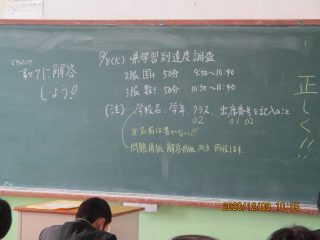 動てに解答
しよう!
12/8(火) 県学習到達度調査
2限 国語 50分 9:50〜10:40
3限 数学 50分 10:50〜11:40
(注) 学校名、学年、クラス、出席番号を記入のこと
02 01 02
※名前は書かない!!
問題用紙 解答用紙 両方 回収します
正しく!!